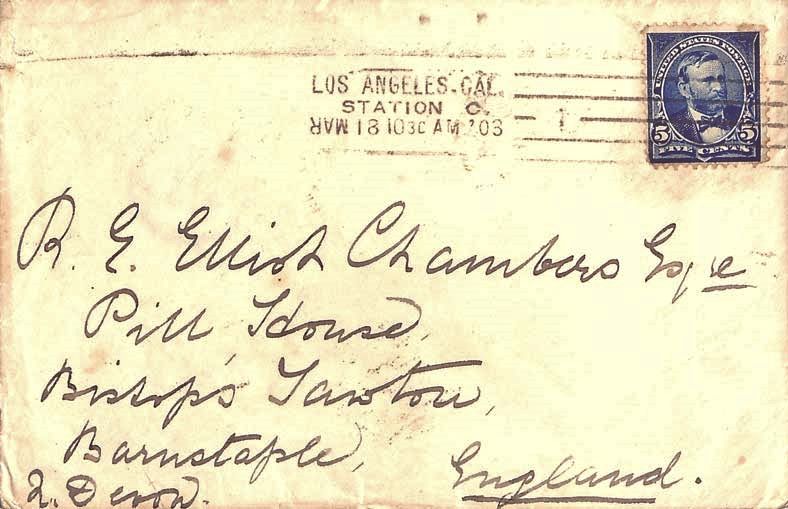 LOS ANGELES. CAL.
STATION C.
MAR 18 1030 AM '03
UNITED STATES POSTAGE
5 5
FIVE CENTS
R. E. Elliot Chambers Esqre
Pill House,
Bishop's Tawton,
Barnstaple,
N. Devon.
England.